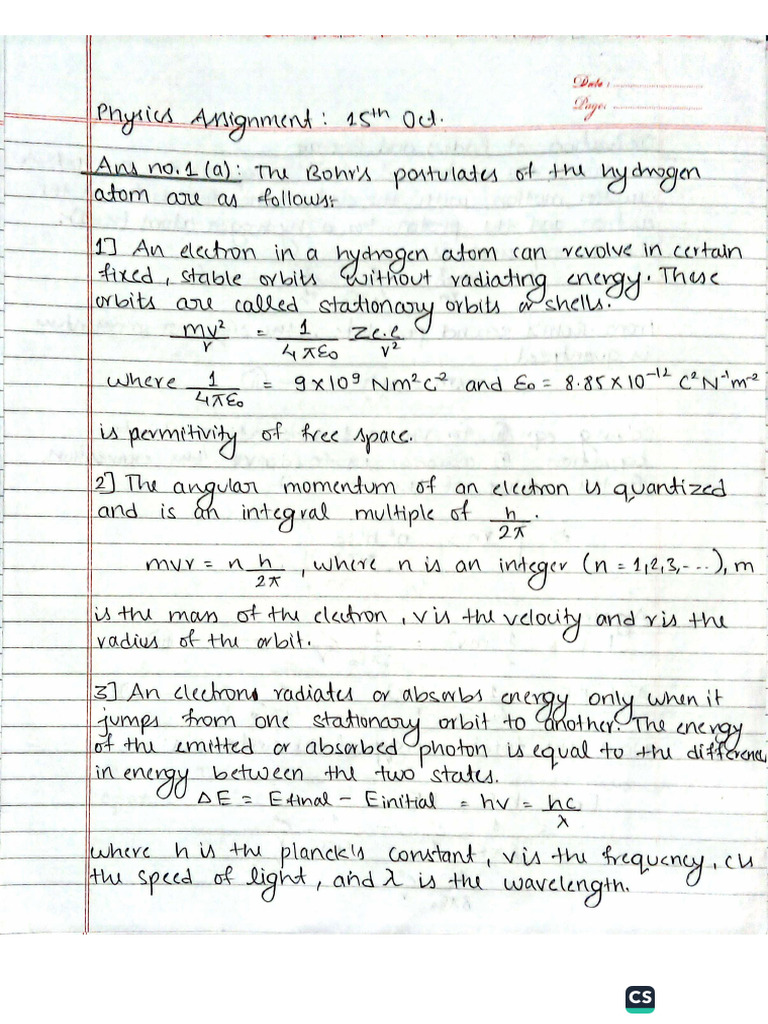 Date :
Page:
Physics Assignment: 15th Oct.
Ans no.1 (a): The Bohr's postulates of the hydrogen
atom are as follows:
1] An electron in a hydrogen atom can revolve in certain
fixed, stable orbits without radiating energy. These
orbits are called stationary orbits or shells.
mv²/r = 1/4πε₀ Ze.e/r²
where 1/4πε₀ = 9×10⁹ Nm²C⁻² and ε₀ = 8.85×10⁻¹² C²N⁻¹m⁻²
is permitivity of free space.
2] The angular momentum of an electron is quantized
and is an integral multiple of h/2π.
mvr = n h/2π, where n is an integer (n = 1,2,3,---), m
is the mass of the electron, v is the velocity and r is the
radius of the orbit.
3] An electron radiates or absorbs energy only when it
jumps from one stationary orbit to another. The energy
of the emitted or absorbed photon is equal to the difference
in energy between the two states.
ΔE = Efinal - Einitial = hv = hc/λ
where h is the planck's constant, v is the frequency, c is
the speed of light, and λ is the wavelength.
CS